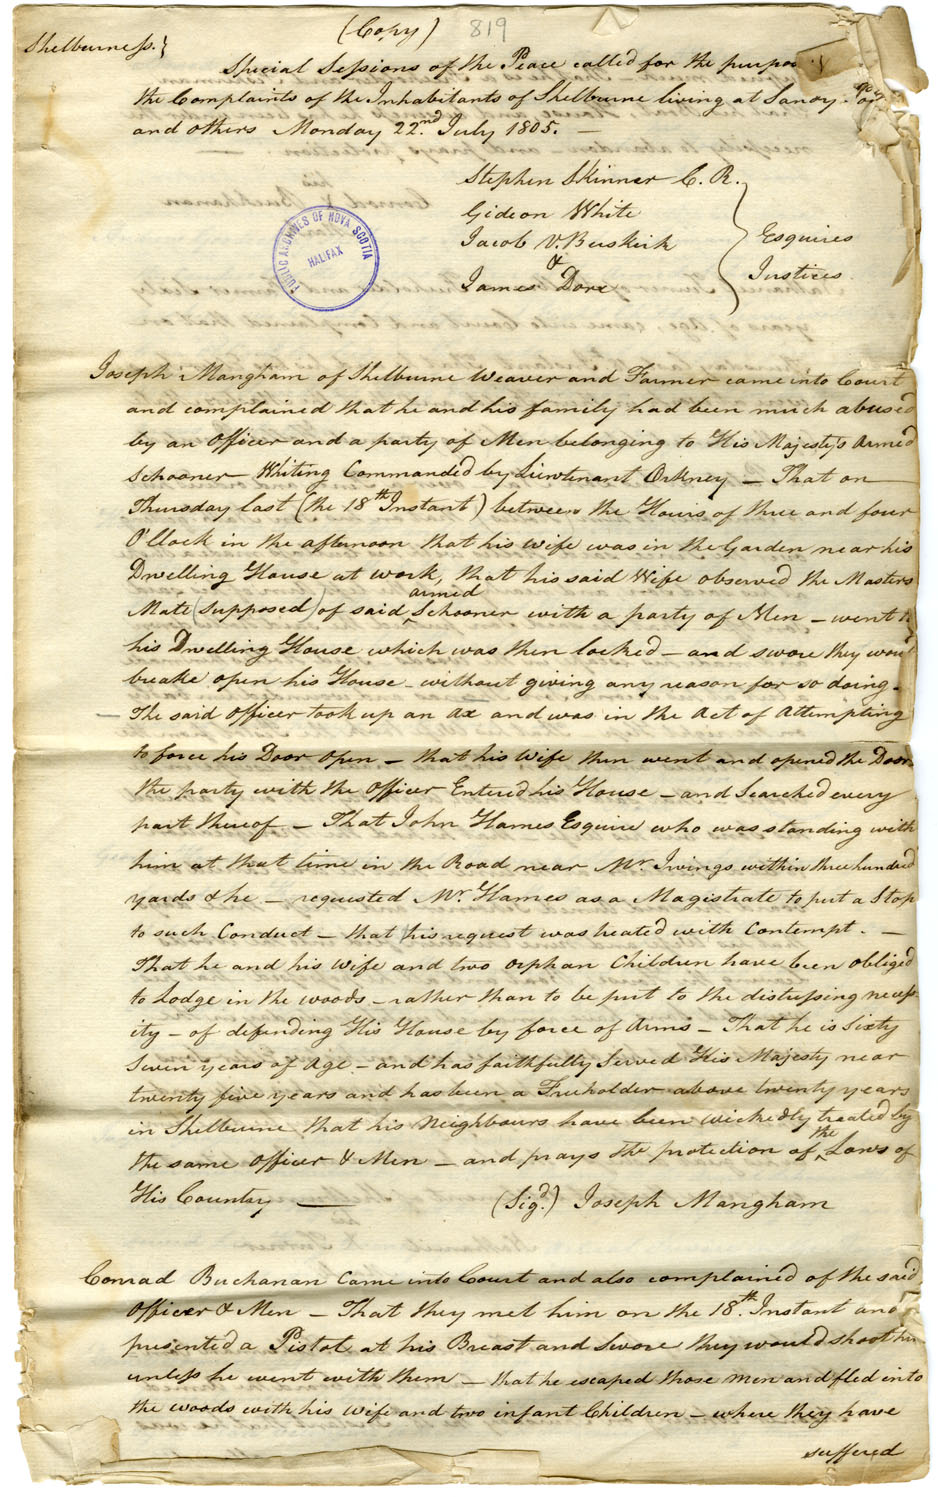 (Copy) 819
Shelburne ss.}
Special Sessions of the Peace called for the purpo
the Complaints of the Inhabitants of Shelburne living at Sandy Po
and others Monday 22.nd July 1805. —
Stephen Skinner C. R.
Gideon White
Jacob V. Buskirk
&
James Dore
Esquires
Justices
PUBLIC ARCHIVES OF NOVA SCOTIA
HALIFAX
Joseph Mangham of Shelburne Weaver and Farmer came into Court
and complained that he and his family had been much abused
by an Officer and a party of Men belonging to His Majesty's Armed
Schooner Whiting Commanded by Lieutenant Orkney — That on
Thursday last (the 18th Instant) between the Hours of three and four
O'Clock in the afternoon that his wife was in the Garden near his
Dwelling House at work, that his said Wife observed the Masters
Mate (supposed) of said armed Schooner with a party of Men — went to
his Dwelling House which was then locked — and swore they would
breake open his House — without giving any reason for so doing —
The said Officer took up an ax and was in the act of Attempting
to force his Door open — that his Wife then went and opened the Door
the party with the Officer Entered his House — and Searched every
part thereof — That John Hames Esquire who was standing with
him at that time in the Road near Mr. Irvings within three hundred
yards & he — requested Mr. Hames as a Magistrate to put a Stop
to such Conduct — that his request was treated with Contempt. —
That he and his Wife and two orphan Children have been obliged
to Lodge in the woods — rather than to be put to the distressing necess
ity — of defending His House by force of Arms — That he is Sixty
Seven years of Age — and has faithfully Served His Majesty near
twenty five years and has been a Freeholder above twenty years
in Shelburne that his Neighbours have been wickedly treated by
the same Officer & Men — and prays the protection of the Laws of
His Country — (Sigd.) Joseph Mangham
Conrad Buchanan Came into Court and also complained of the said
Officer & Men — That they met him on the 18th. Instant and
presented a Pistol at his Breast and Swore they would shoot him
unless he went with them — that he escaped those men and fled into
the woods with his wife and two infant Children — where they have
suffered